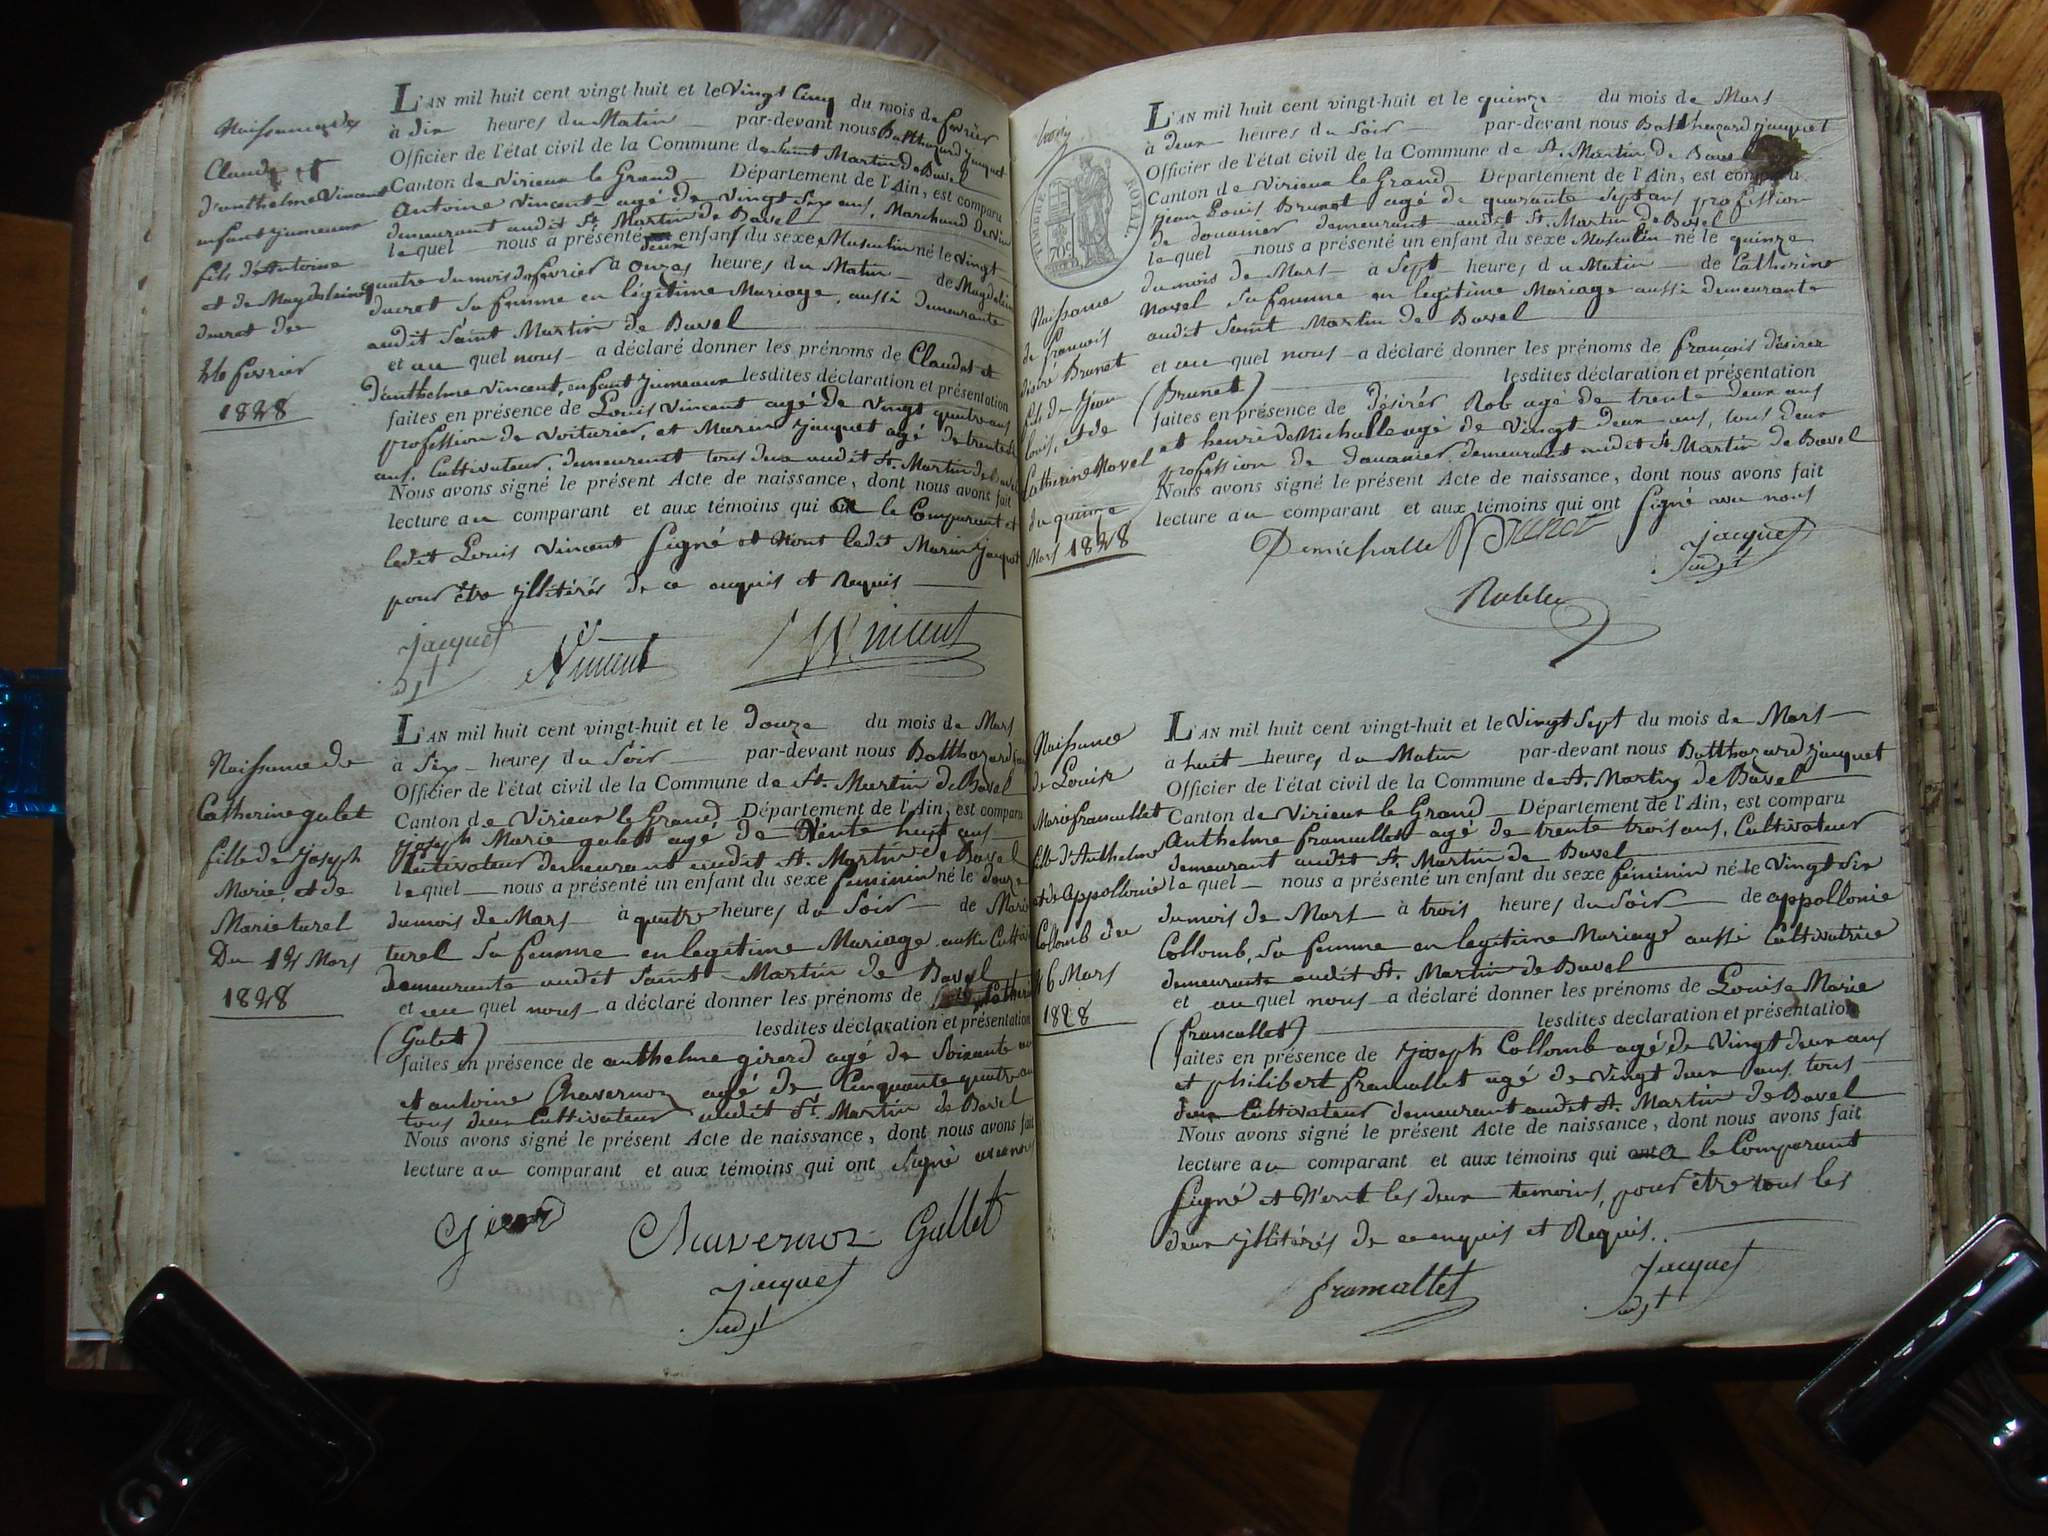 Naissance des
Claude et
d'anthelme Vincent
enfants jumeaux
fils d'Antoine
et de Magdeleine
ducret du
24 fevrier
1828
L'AN mil huit cent vingt-huit et le Vingt Cinq du mois de fevrier
à dix heures du Matin par-devant nous Balthazard jacquet
Officier de l'état civil de la Commune de Saint Martin de Bavel
Canton de Virieux le Grand Département de l'Ain, est comparu
Antoine Vincent agé de Vingt Six ans, Marchand De vin
demeurant audit St. Martin De Bavel
le quel nous a présenté deux enfans du sexe Masculin né le Vingt
quatre du mois de fevrier à onzes heures du Matin de Magdelein
ducret Sa femme en légitime Mariage, aussi demeurante
audit Saint Martin de Bavel
et au quel nous a déclaré donner les prénoms de Claude et
d'anthelme Vincent, enfant jumeaux lesdites déclaration et présentation
faites en présence de Louis Vincent agé de Vingt quatre ans
profession de Voiturier, et Marin jacquet agé de trente
ans, Cultivateur, demeurant tous deux audit St. Martin de Bavel
Nous avons signé le présent Acte de naissance, dont nous avons fait
lecture au comparant et aux témoins qui le Comparant et
ledit Louis Vincent Signé et Nont ledit Marin jacquet
pour être jllitérés de ce enquis et Requis
jacquet
Vincent
Vincent
Naissance de
Catherine galet
fille de Joseph
Marie, et de
Marie turel
Du 12 Mars
1828
L'AN mil huit cent vingt-huit et le Douze du mois de Mars
à Six heures du Soir par-devant nous Balthazard
Officier de l'état civil de la Commune de St. Martin de Bavel
Canton de Virieux le Grand Département de l'Ain, est comparu
joseph Marie galet agé de trente huit ans
Cultivateur demeurant audit St. Martin de Bavel
le quel nous a présenté un enfant du sexe feminin né le douze
du mois de Mars à quatre heures du Soir de Marie
turel Sa femme en legitime Mariage aussi
demeurante audit Saint Martin de Bavel
et au quel nous a déclaré donner les prénoms de Catherine
(Galet) lesdites déclaration et présentation
faites en présence de anthelme girerd agé de Soixante
et antoine Chavernoz agé de Cinquante quatre
tous deux Cultivateur audit St. Martin de Bavel
Nous avons signé le présent Acte de naissance, dont nous avons fait
lecture au comparant et aux témoins qui ont Signé avec nous
Chavernoz Gallet
jacquet
Naissance
de francois
désiré Brunet
fils de Jean
louis, et de
Catherine Navel
du quinze
Mars 1828
TIMBRE ROYAL.
70c
L'AN mil huit cent vingt-huit et le quinze du mois de Mars
à Deux heures du Soir par-devant nous Balthazard jacquet
Officier de l'état civil de la Commune de St. Martin de Bavel
Canton de Virieux le Grand Département de l'Ain, est comparu
Jean Louis Brunet agé de quarante Sept ans profession
de douanier demeurant audit St. Martin de Bavel
le quel nous a présenté un enfant du sexe Masculin né le quinze
du mois de Mars à Sept heures du Matin de Catherine
Navel Sa femme en legitime Mariage aussi demeurante
audit Saint Martin de Bavel
et au quel nous a déclaré donner les prénoms de francois désirez
(Brunet) lesdites déclaration et présentation
faites en présence de Désirés Rob agé de trente deux ans
et henri deMichalle agé de Vingt Deux ans, tous deux
profession de douanier demeurant audit St. Martin de Bavel
Nous avons signé le présent Acte de naissance, dont nous avons fait
lecture au comparant et aux témoins qui ont Signé avec nous
Demichalle Brunet
jacquet
Naissance
de Louise
Marie francallet
fille d'Anthelme
et de Appollonie
Collomb du
26 Mars
1828
L'AN mil huit cent vingt-huit et le Vingt Sept du mois de Mars
à huit heures du Matin par-devant nous Balthazard jacquet
Officier de l'état civil de la Commune de St. Martin de Bavel
Canton de Virieux le Grand Département de l'Ain, est comparu
Anthelme francallet agé de trente trois ans, Cultivateur
demeurant audit St. Martin de Bavel
le quel nous a présenté un enfant du sexe feminin né le Vingt Six
du mois de Mars à trois heures du Soir de appollonie
Collomb, Sa femme en legitime Mariage aussi Cultivatrice
demeurante audit St. Martin de Bavel
et au quel nous a déclaré donner les prénoms de Louise Marie
(francallet) lesdites déclaration et présentation
faites en présence de Joseph Collomb agé de Vingt deux ans
et philibert francallet agé de Vingt deux ans, tous
deux Cultivateur demeurant audit St. Martin de Bavel
Nous avons signé le présent Acte de naissance, dont nous avons fait
lecture au comparant et aux témoins qui a le Comparant
Signé et N'ont les deux temoins, pour être tous les
deux jllitérés de ce enquis et Requis.
francallet
jacquet